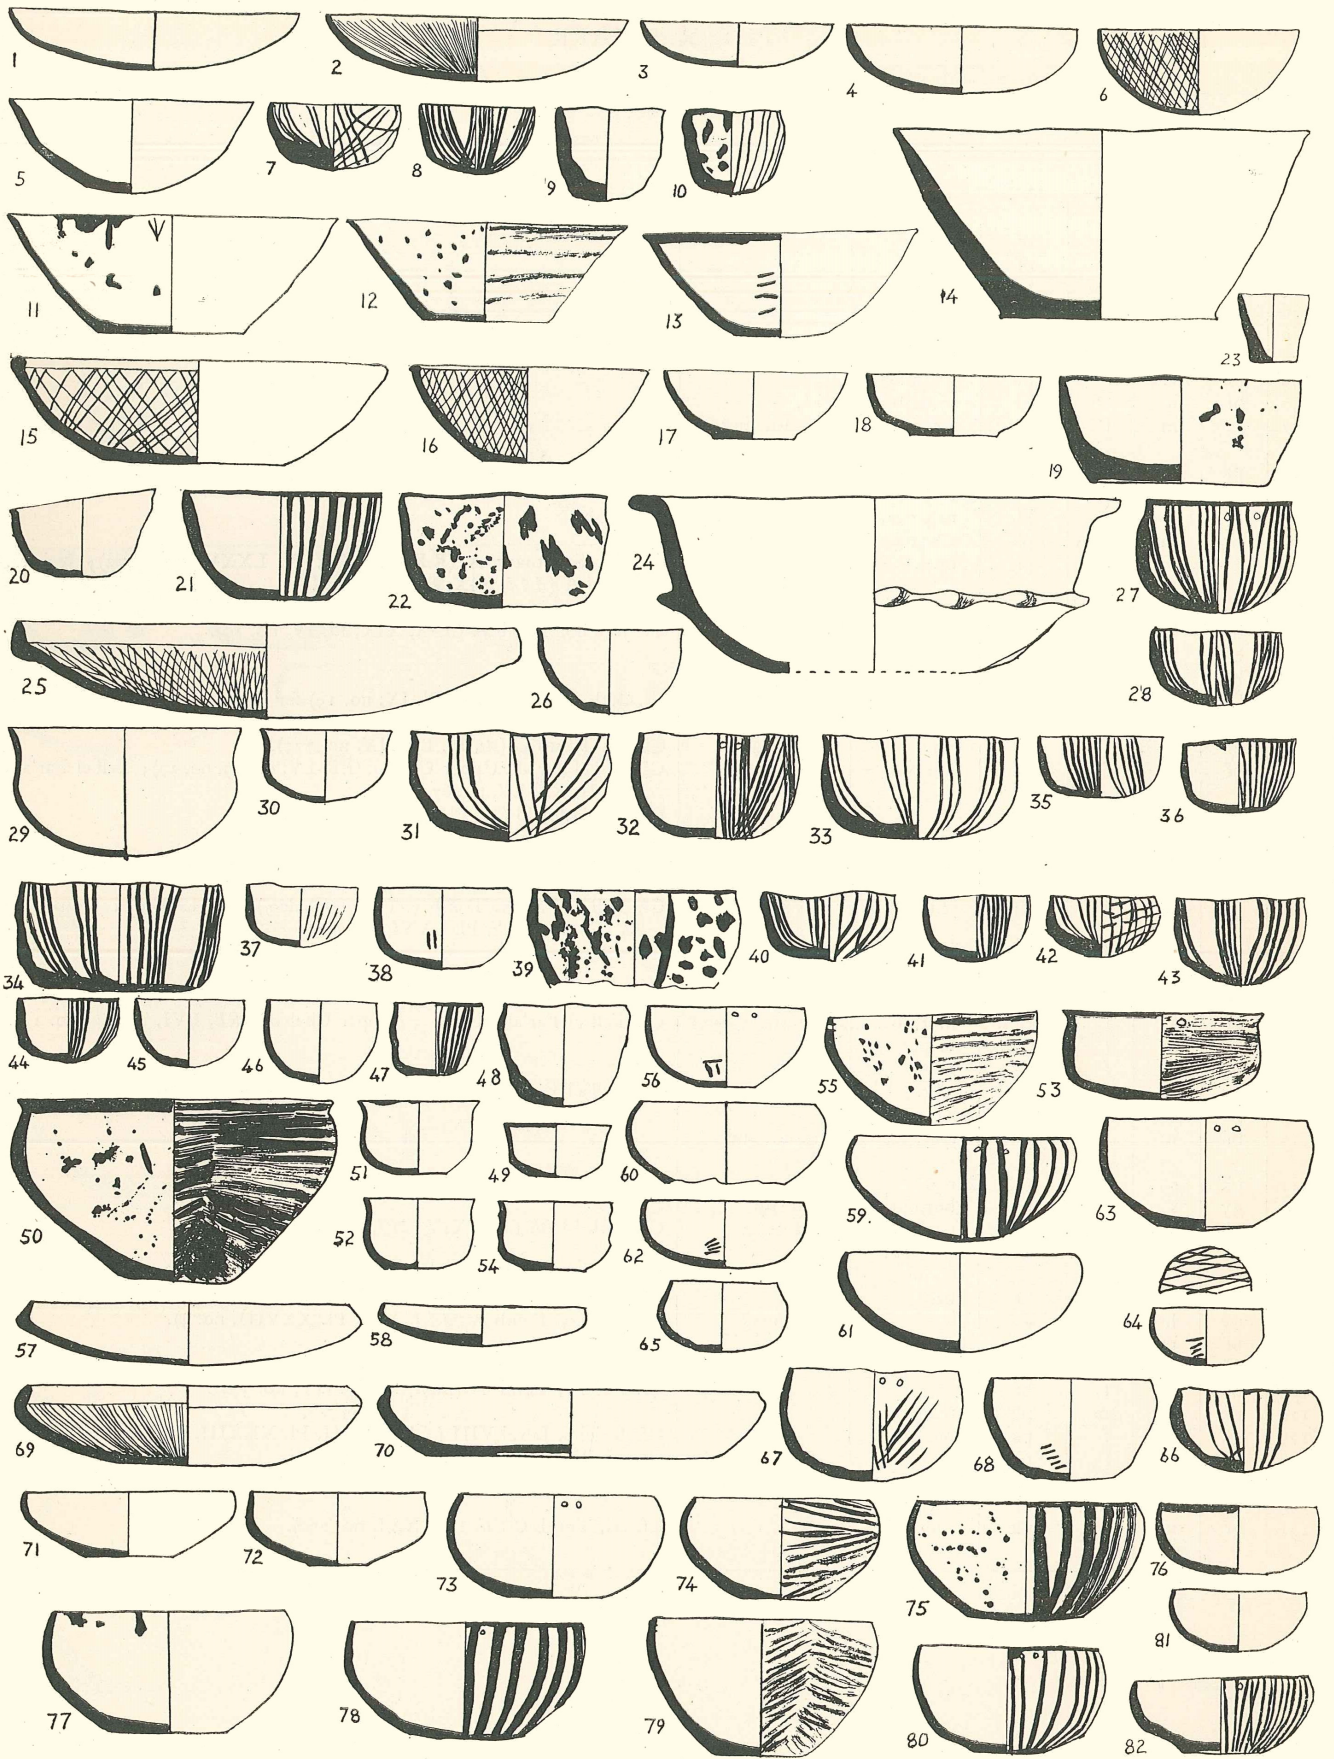 1 2 3 4 6
5 7 8 9 10
11 12 13 14 23
15 16 17 18 19
20 21 22 24 27
25 26 28
29 30 31 32 33 35 36
34 37 38 39 40 41 42 43
44 45 46 47 48 56 55 53
50 51 49 60 59. 63
52 54 62 61 64
57 58 65
69 70 67 68 66
71 72 73 74 75 76
77 78 79 80 81
82